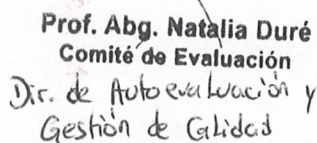 Prof. Abg. Natalia Duré
Comité de Evaluación
Dir. de Autoevaluación y
Gestión de Calidad